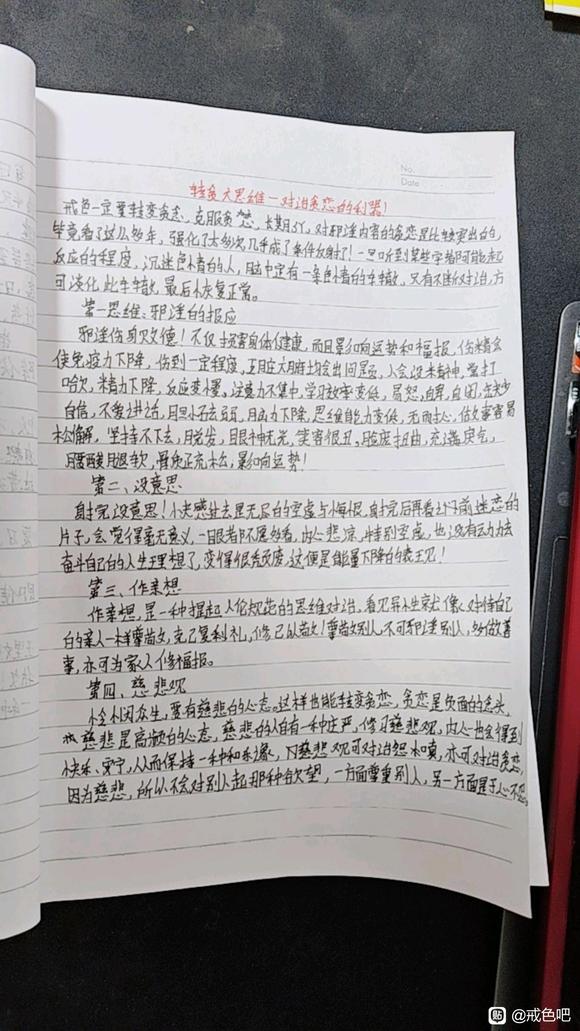 No.
Date
转贪大思维—对治贪恋的利器!
戒色一定要转变贪恋,克服贪恋,长期SY,对邪淫内容的贪恋是比较突出的,
毕竟看了这么多年,强化了太多次几乎成了条件反射了!一旦听到某些字都可能起
反应的程度,沉迷色情的人,脑中定有一条色情的车辙,只有不断对治,方
可淡化此车辙,最后恢复正常。
第一思维:邪淫的报应
邪淫伤身败德!不仅损害身体健康,而且影响运势和福报,伤精会
使免疫力下降,伤到一定程度,五脏六腑均会出问题,人会没精神,常打
哈欠,精力下降,反应变慢,注意力不集中,学习效率变低,易怒,自卑,自闭,缺少
自信,不敢讲话,胆小怯弱,脑力下降,思维能力变低,无耐心,做事容易
松懈,坚持不下去,脱发,眼神无光,笑容很丑,脸庞扭曲,充满戾气,
腰酸腿软,骨质疏松,影响运势!
第二、没意思
射完没意思!小快感过去是无尽的空虚与悔恨,射完后再看之前迷恋的
片子,会觉得毫无意义,一眼都不愿多看,内心悲凉,特别空虚,也没有动力去
奋斗自己的人生理想了,变得很颓废,这便是能量下降的表现!
第三、作亲想
作亲想,是一种提起人伦规范的思维对治,看见异性家犬像对待自己
的亲人一样尊敬,克己复利礼,修己以敬!尊敬别人不可邪淫别人,多做善
事,亦可为家人修福报。
第四、慈悲观
怜悯众生,要有慈悲的心态。这样也能转变贪恋,贪恋是负面的念头,
慈悲是高频的心态,慈悲的人自有一种庄严,修习慈悲观,内心也会得到
快乐、安宁,从而保持一种和乐之象,以慈悲观可对治怨恨嗔,亦可对治贪恋,
因为慈悲,所以不会对别人起那种欲望,一方面尊重别人,另一方面是于心不忍。
贴 @戒色吧